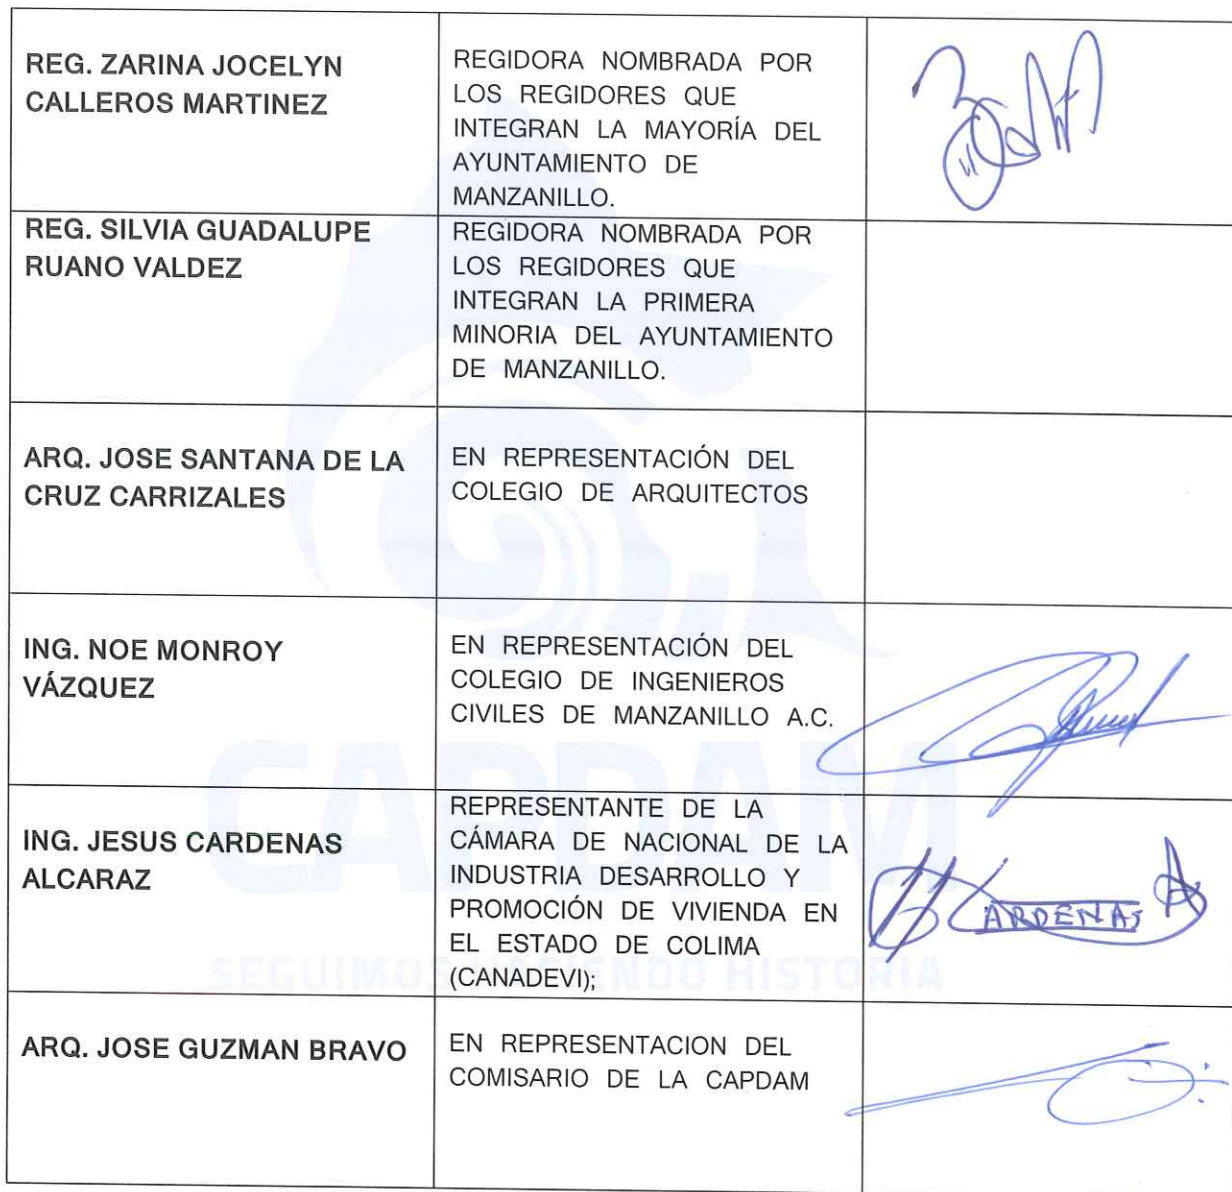 REG. ZARINA JOCELYN
CALLEROS MARTINEZ
REGIDORA NOMBRADA POR
LOS REGIDORES QUE
INTEGRAN LA MAYORÍA DEL
AYUNTAMIENTO DE
MANZANILLO.
REG. SILVIA GUADALUPE
RUANO VALDEZ
REGIDORA NOMBRADA POR
LOS REGIDORES QUE
INTEGRAN LA PRIMERA
MINORIA DEL AYUNTAMIENTO
DE MANZANILLO.
ARQ. JOSE SANTANA DE LA
CRUZ CARRIZALES
EN REPRESENTACIÓN DEL
COLEGIO DE ARQUITECTOS
ING. NOE MONROY
VÁZQUEZ
EN REPRESENTACIÓN DEL
COLEGIO DE INGENIEROS
CIVILES DE MANZANILLO A.C.
ING. JESUS CARDENAS
ALCARAZ
REPRESENTANTE DE LA
CÁMARA DE NACIONAL DE LA
INDUSTRIA DESARROLLO Y
PROMOCIÓN DE VIVIENDA EN
EL ESTADO DE COLIMA
(CANADEVI);
CARDENAS A
ARQ. JOSE GUZMAN BRAVO
EN REPRESENTACION DEL
COMISARIO DE LA CAPDAM
CAPDAM
SEGUIMOS HACIENDO HISTORIA